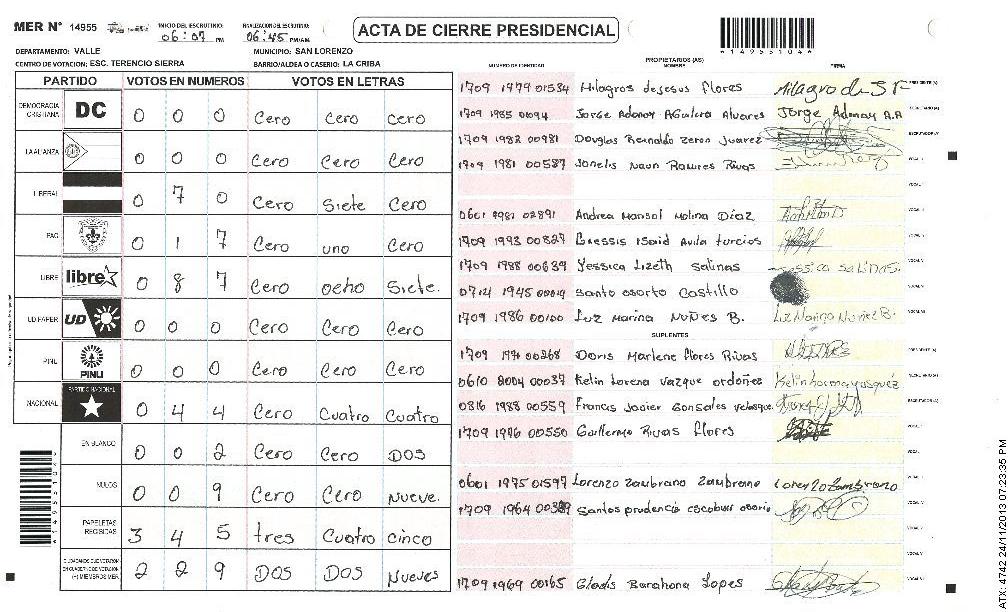 MER N° 14955 INICIO DEL ESCRUTINIO: 06:07 PM FINALIZACION DEL ESCRUTINIO: 06:45 PM/AM ACTA DE CIERRE PRESIDENCIAL
*14955104*
DEPARTAMENTO: VALLE MUNICIPIO: SAN LORENZO
CENTRO DE VOTACION: ESC. TERENCIO SIERRA BARRIO/ALDEA O CASERIO: LA CRIBA
PARTIDO VOTOS EN NUMEROS VOTOS EN LETRAS
DEMOCRACIA CRISTIANA DC 0 0 0 Cero Cero Cero
LA ALIANZA 0 0 0 Cero Cero Cero
LIBERAL 0 7 0 Cero Siete Cero
PAC 0 1 7 Cero uno Cero
LIBRE libre 0 8 7 Cero ocho Siete.
UD.FAPER UD 0 0 0 Cero Cero Cero
PINU PINU 0 0 0 Cero Cero Cero
NACIONAL PARTIDO NACIONAL 0 4 4 Cero Cuatro Cuatro
EN BLANCO 0 0 2 Cero Cero DOS
NULOS 0 0 9 Cero Cero Nueve.
PAPELETAS RECIBIDAS 3 4 5 tres Cuatro cinco
CIUDADANOS QUE VOTARON EN CUADERNO DE VOTACION (+) MIEMBROS MER 2 2 9 DOS DOS Nueves
PROPIETARIOS (AS)
NUMERO DE IDENTIDAD NOMBRE FIRMA
1709 1979 01534 Milagros dejesus flores PRESIDENTE (A)
1709 1985 0094 Jorge Adonay Aguilera Alvares Jorge Adonay A.A SECRETARIO (A)
1709 1982 00981 Douglas Reinaldo Zeron Juarez ESCRUTADOR (A)
1709 1981 00587 Jonelis Naun Ramires Rivas VOCAL I
0601 1981 02891 Andrea Marisol Molina Díaz
1709 1993 00827 Gressis Isaid Avila turcios
1709 1988 00639 Yessica Lizeth Salinas
0714 1945 00014 Santo osorto Castillo
1709 1986 00100 Luz Marina Nuñes B.
SUPLENTES
Doris Marlene flores Rivas PRESIDENTE (A)
0610 8004 00037 Kelin Lorena Vazque ordoñes SECRETARIO (A)
0816 1988 00559 Francis Javier Gonsales velasque. ESCRUTADOR (A)
1709 1976 00550 Guillermo Rivas flores
0601 1975 01597 Lorenzo Zambrano Zambrano Lorenzo Zambrano
1709 1964 Santos prudencio escobar osorio
1709 1969 00165 Gladis Barahona Lopes
ATX: 4742 24/11/2013 07:23:35 PM